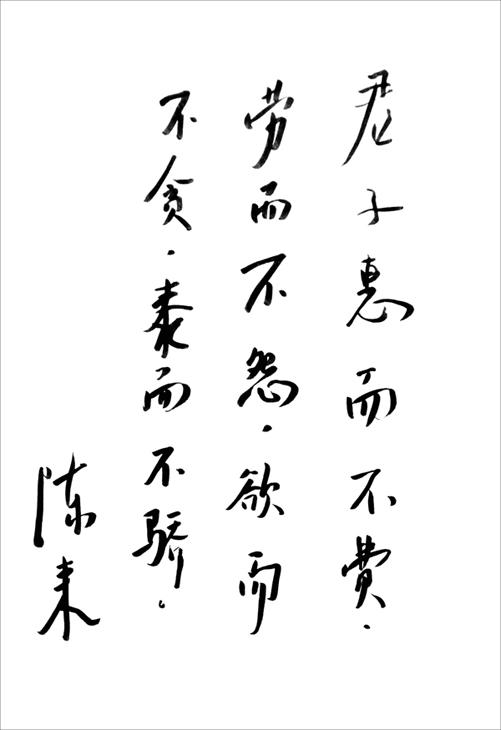 君子惠而不费.
劳而不怨.欲而
不贪.泰而不骄.
陈来